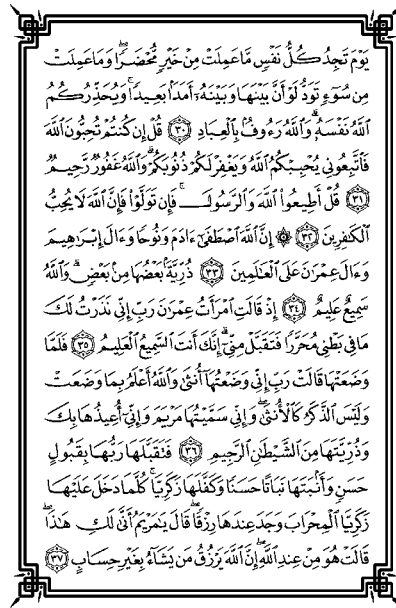 يَوْمَ تَجِدُ كُلُّ نَفْسٍ مَّا عَمِلَتْ مِنْ خَيْرٍ مُّحْضَرًا وَمَا عَمِلَتْ
مِن سُوٓءٍ تَوَدُّ لَوْ أَنَّ بَيْنَهَا وَبَيْنَهُۥٓ أَمَدَۢا بَعِيدًا ۗ وَيُحَذِّرُكُمُ
ٱللَّهُ نَفْسَهُۥ ۗ وَٱللَّهُ رَءُوفُۢ بِٱلْعِبَادِ ﴿٣٠﴾ قُلْ إِن كُنتُمْ تُحِبُّونَ ٱللَّهَ
فَٱتَّبِعُونِى يُحْبِبْكُمُ ٱللَّهُ وَيَغْفِرْ لَكُمْ ذُنُوبَكُمْ ۗ وَٱللَّهُ غَفُورٌ رَّحِيمٌ
﴿٣١﴾ قُلْ أَطِيعُوا۟ ٱللَّهَ وَٱلرَّسُولَ ۖ فَإِن تَوَلَّوْا۟ فَإِنَّ ٱللَّهَ لَا يُحِبُّ
ٱلْكَٰفِرِينَ ﴿٣٢﴾ ۞ إِنَّ ٱللَّهَ ٱصْطَفَىٰٓ ءَادَمَ وَنُوحًا وَءَالَ إِبْرَٰهِيمَ
وَءَالَ عِمْرَٰنَ عَلَى ٱلْعَٰلَمِينَ ﴿٣٣﴾ ذُرِّيَّةَۢ بَعْضُهَا مِنۢ بَعْضٍ ۗ وَٱللَّهُ
سَمِيعٌ عَلِيمٌ ﴿٣٤﴾ إِذْ قَالَتِ ٱمْرَأَتُ عِمْرَٰنَ رَبِّ إِنِّى نَذَرْتُ لَكَ
مَا فِى بَطْنِى مُحَرَّرًا فَتَقَبَّلْ مِنِّىٓ ۖ إِنَّكَ أَنتَ ٱلسَّمِيعُ ٱلْعَلِيمُ ﴿٣٥﴾ فَلَمَّا
وَضَعَتْهَا قَالَتْ رَبِّ إِنِّى وَضَعْتُهَآ أُنثَىٰ وَٱللَّهُ أَعْلَمُ بِمَا وَضَعَتْ
وَلَيْسَ ٱلذَّكَرُ كَٱلْأُنثَىٰ ۖ وَإِنِّى سَمَّيْتُهَا مَرْيَمَ وَإِنِّىٓ أُعِيذُهَا بِكَ
وَذُرِّيَّتَهَا مِنَ ٱلشَّيْطَٰنِ ٱلرَّجِيمِ ﴿٣٦﴾ فَتَقَبَّلَهَا رَبُّهَا بِقَبُولٍ
حَسَنٍ وَأَنۢبَتَهَا نَبَاتًا حَسَنًا وَكَفَّلَهَا زَكَرِيَّا ۖ كُلَّمَا دَخَلَ عَلَيْهَا
زَكَرِيَّا ٱلْمِحْرَابَ وَجَدَ عِندَهَا رِزْقًا ۖ قَالَ يَٰمَرْيَمُ أَنَّىٰ لَكِ هَٰذَا ۖ
قَالَتْ هُوَ مِنْ عِندِ ٱللَّهِ ۖ إِنَّ ٱللَّهَ يَرْزُقُ مَن يَشَآءُ بِغَيْرِ حِسَابٍ ﴿٣٧﴾